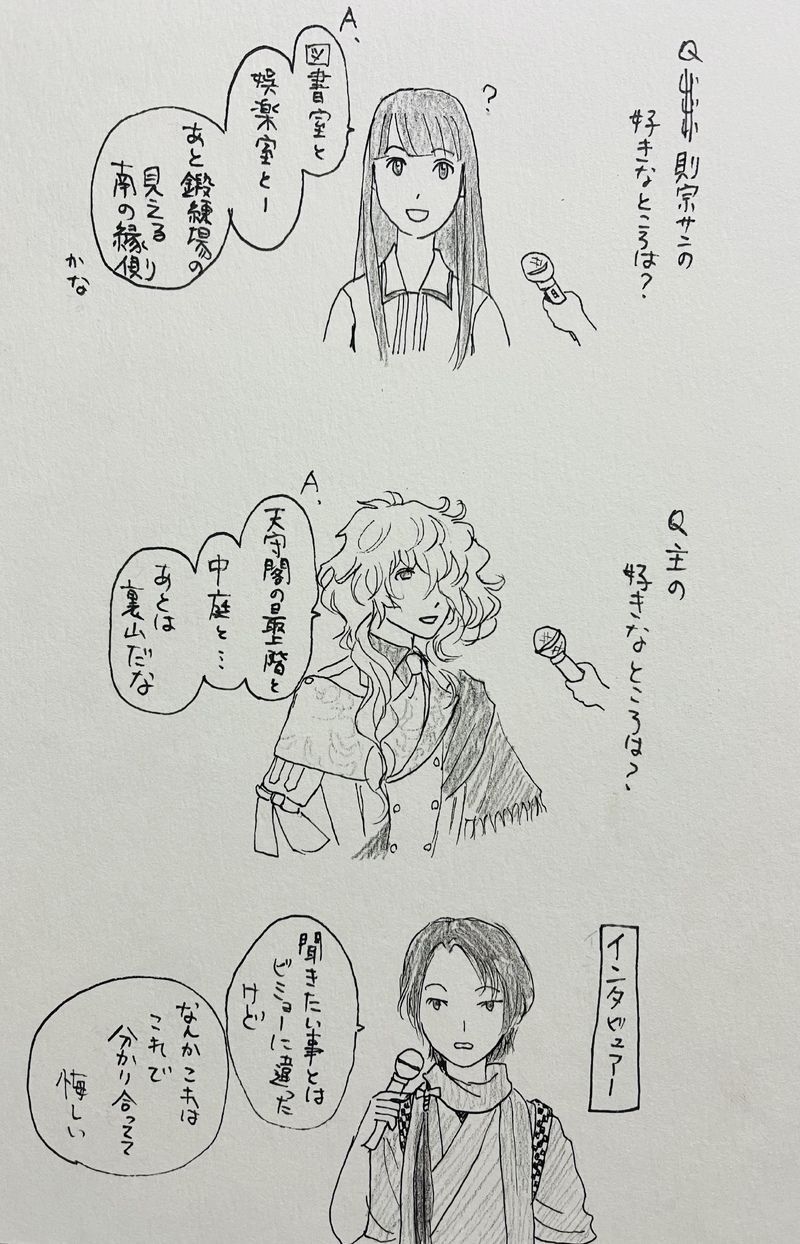 Q 則宗サンの
好きなところは?
?
A.
図書室と
娯楽室とー
あと鍛練場の
見える
南の縁側
かな
Q 主の
好きなところは?
A.
天守閣の最上階と
中庭と…
あとは
裏山だな
インタビュアー
聞きたい事とは
ビミョーに違った
けど
なんかこれは
これで
分かり合ってて
悔しい